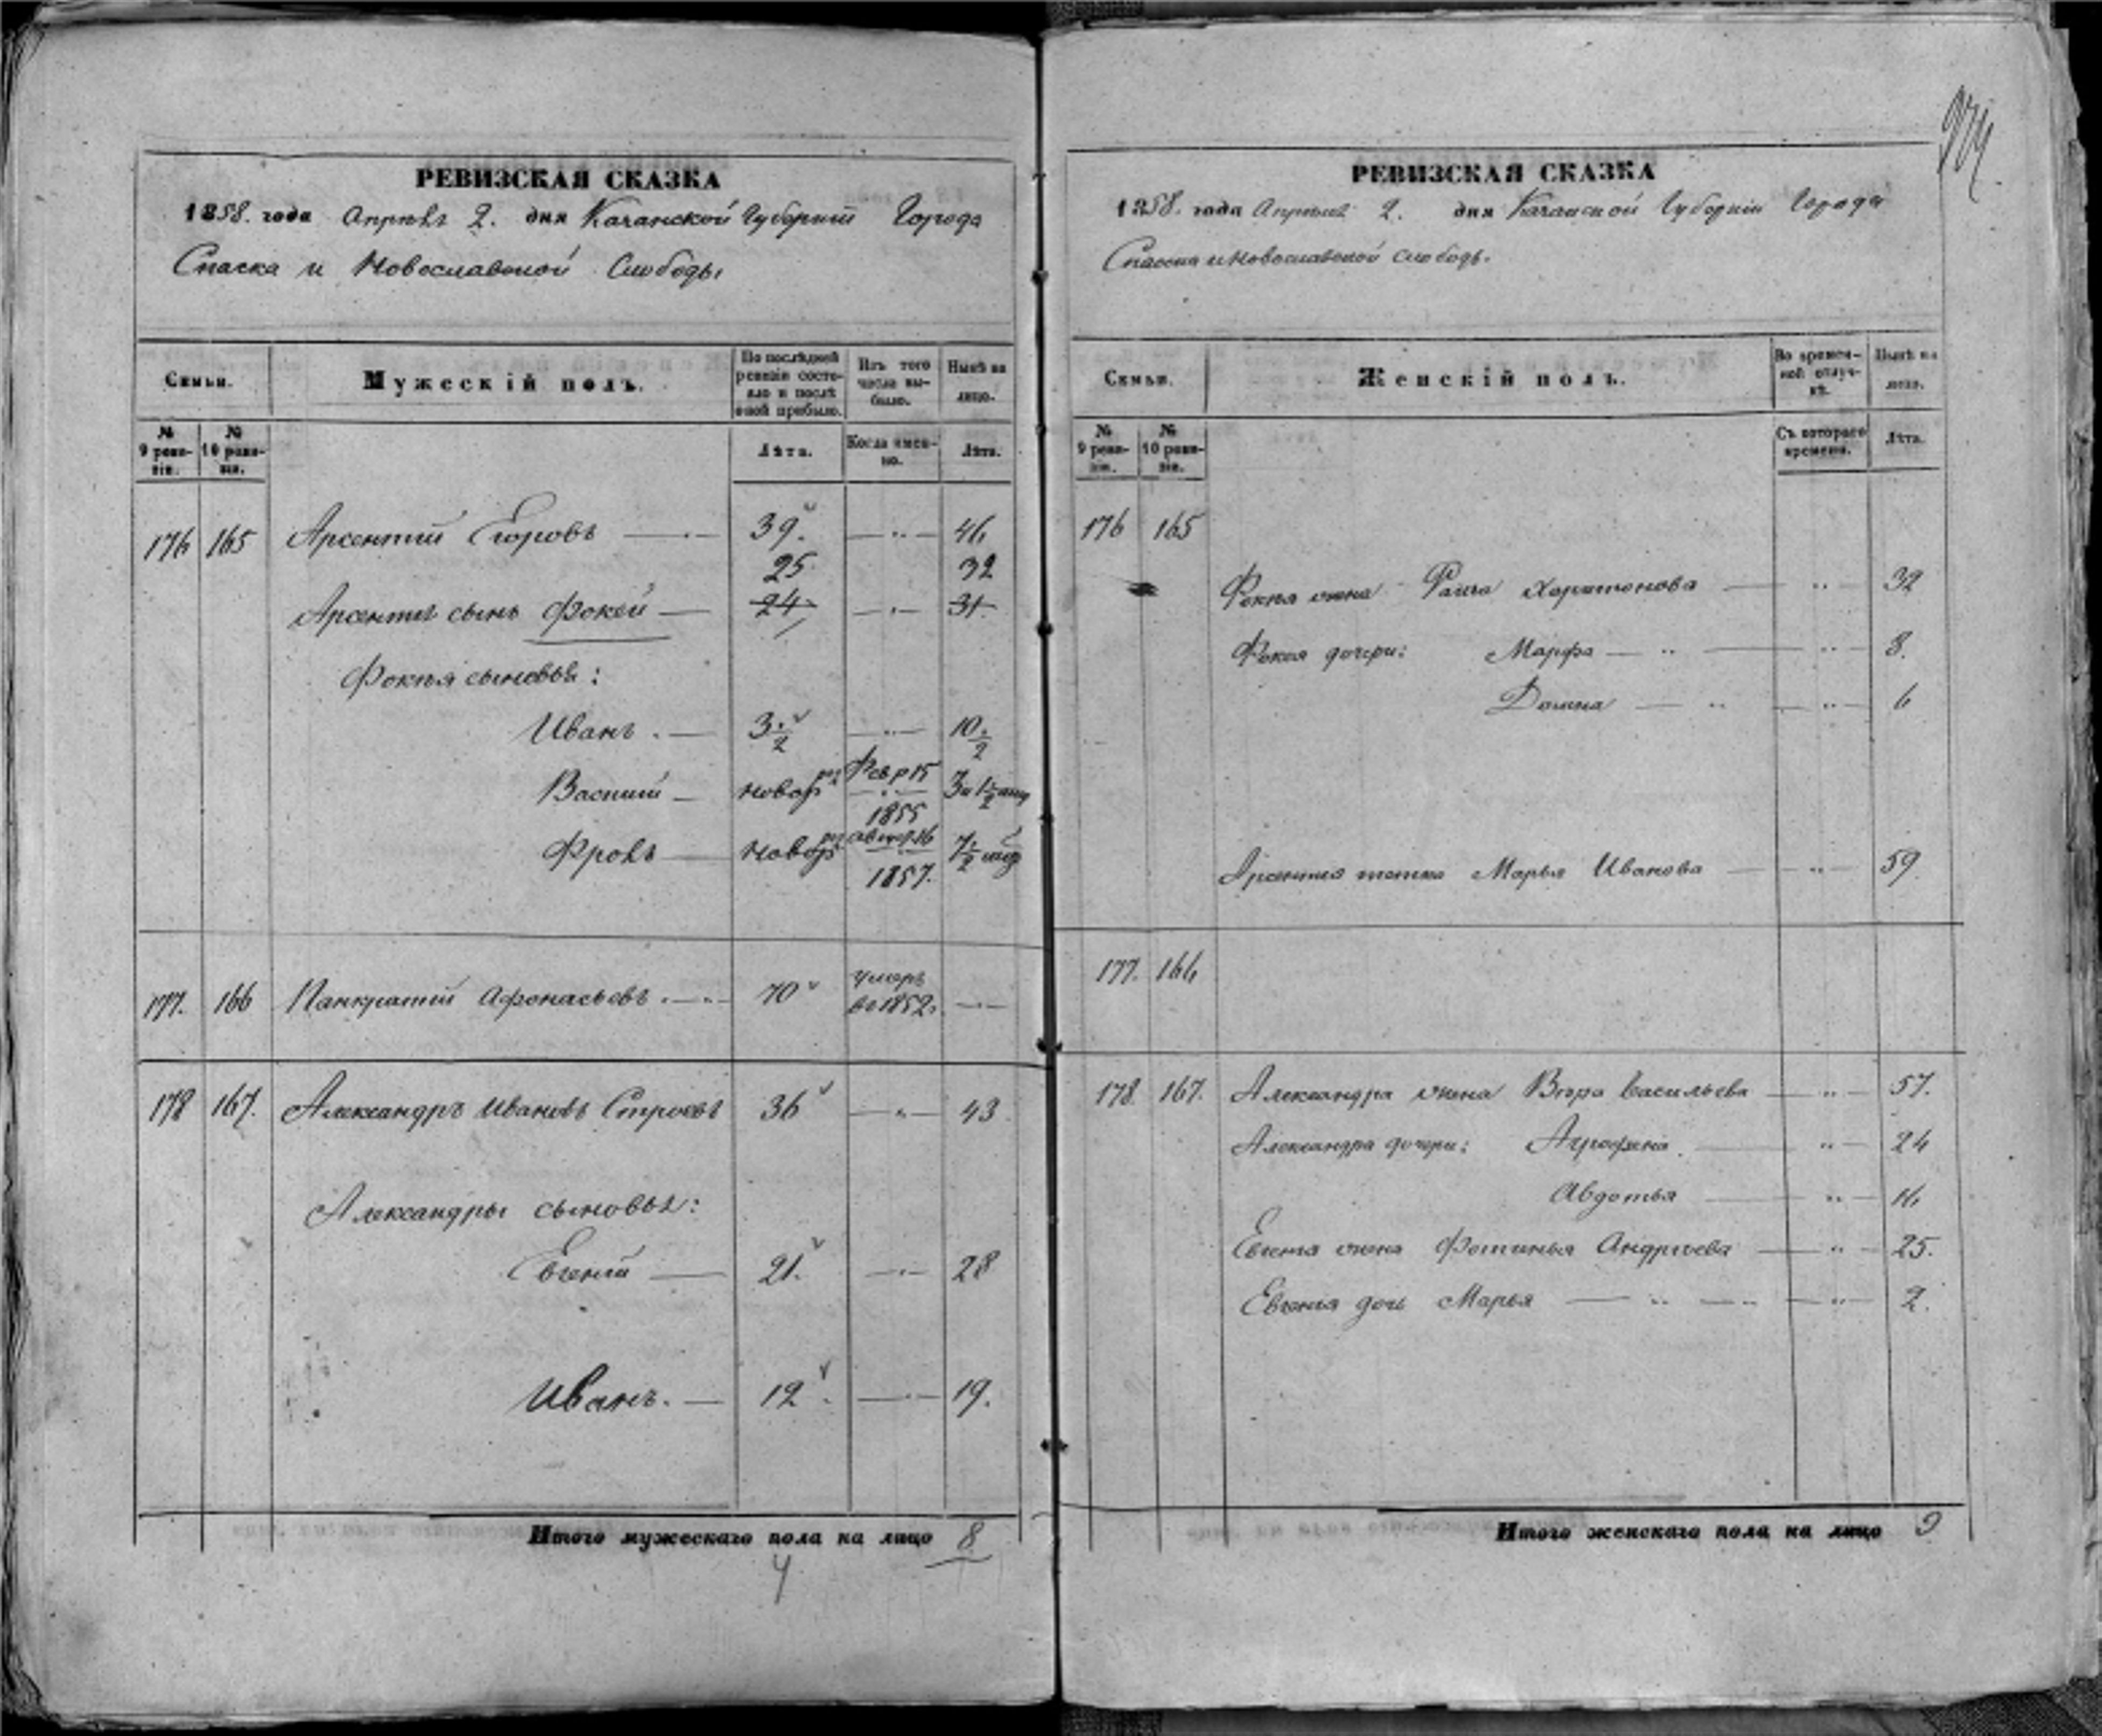 РЕВИЗСКАЯ СКАЗКА
1858. года Апрѣля 2. дня Казанской Губерніи Города
Спаска и Новославской Слободы
Семьи. Мужескій полъ. По послѣдней ревизіи состояло и послѣ оной прибыло. Изъ того числа выбыло. Нынѣ на лицо.
№ 9 реви-зіи. № 10 реви-зіи. Лѣта. Когда имен-но. Лѣта.
176 165 Арсентій Егоровъ 39. 46
25 32
Арсентія сынъ Фокей 24 31
Фокѣя сыновья:
Иванъ 3 1/2 10 1/2
Василій новор Февр 15 1855 3 и 1 1/2 мѣ
Фролъ новор 1857. 7 1/2 мѣ
177. 166 Панкратій Афонасьевъ 70 умеръ въ 1852.
178 167. Александръ Ивановъ Строевъ 36 43
Александры сыновья:
Евгеній 21. 28
Иванъ. 12. 19.
Итого мужескаго пола на лицо 8
4
РЕВИЗСКАЯ СКАЗКА
1858. года Апрѣля 2. дня Казанской Губерніи Города
Спасска и Новославской слободы.
Семьи. Женскій полъ. Во времен-ной отлуч-кѣ. Нынѣ на лицо.
№ 9 реви-зіи. № 10 реви-зіи. Съ котораго времени. Лѣта.
176 165
Фокѣя жена Харитонова 32
Фокея дочери: Марфа 8.
Домна 6
Арсентия тетка Марья Иванова 59.
177. 166
178 167. Александра жена Вѣра Васильева 57.
Александра дочери: Аграфена 24
Авдотья 16
Евгенія жена Фотинья Андрѣева 25.
Евгенія дочь Марья 2.
Итого женскаго пола на лицо 9